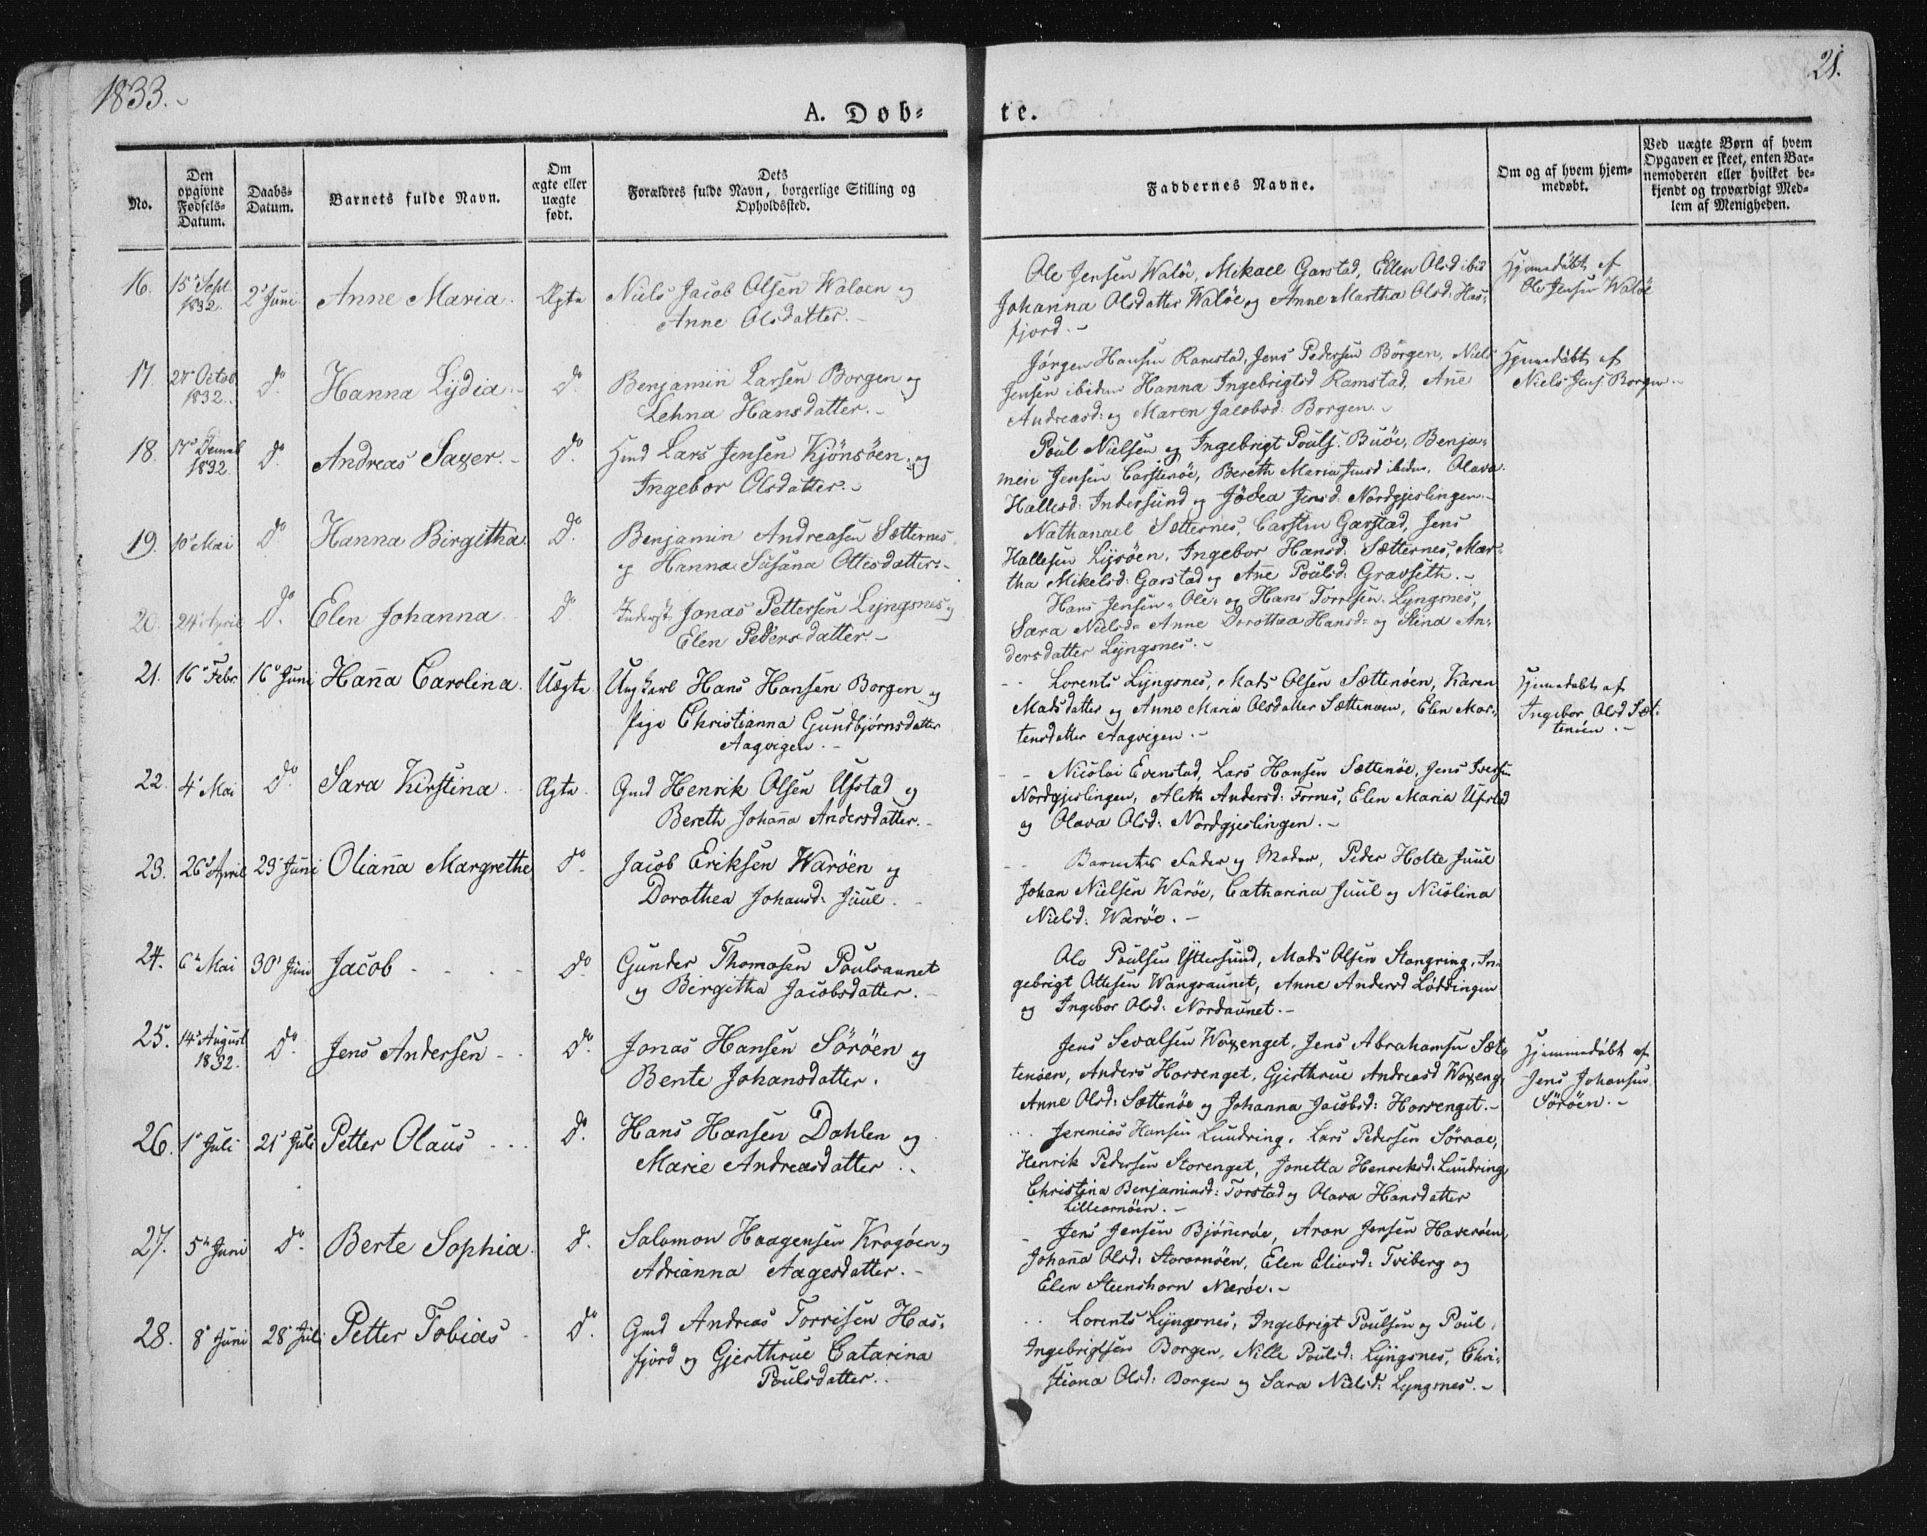 1833.
21.
A. Døb-
te.
No.
Den opgivne Fødsels-Datum.
Daabs-Datum.
Barnets fulde Navn.
Om ægte eller uægte født.
Dets Forældres fulde Navn, borgerlige Stilling og Opholdssted.
Faddernes Navne.
Om og af hvem hjem-medøbt.
Ved uægte Børn af hvem Opgaven er skeet, enten Bar-nemoderen eller hvilket be-kjendt og troværdigt Med-lem af Menigheden.
16. 15de Sept 1832. 2d Juni Anne Maria. Ægte
Niels Jacob Olsen Waløen og
Anne Olsdatter.
Ole Jensen Waløe, Mekael Garstad, Ellen Olsd ibid
Johanna Olsdatter Waløe og Anne Martha Olsd: Has-
fjord.
Hjemmedøbt af
Ole Jensen Waløe
17. Octob 1832. do. Hanna Lydia. do
Benjamin Larsen Borgen og
Lehna Hansdatter.
Jørgen Hansen Ramstad, Jens Pedersen Börgen, Niels
Jensen ibidem Hanna Ingebrigtsd Ramstad, Añe
Andreasd: og Maren Jacobsd: Borgen.
Hjemmedøbt af
Niels Jens: Borgen
18. 17de Decmb 1832. do. Andreas Saxer. do.
Hmd Lars Jensen Kjönsöen og
Ingebor Olsdatter.
Poul Nielsen og Ingebrigt Pouls: Buöe, Benja-
min Jensen Carstenöe, Bereth Maria Jensd ibidem, Olava
Hallesd: Indersund og Jödea Jensd: Nordgjeslingen.
19. 10d Mai do Hanna Birgitha. do.
Benjamin Andreasen Sætternes
og Hanna Susana Ottesdatter.
Nathanael Sætternes, Carsten Garstad, Jens
Hallesen Lysöen, Ingebor Hansd: Sætternes, Mar-
tha Mikelsd: Garstad og Añe Poulsd: Gravseth.
20. 24d April do. Elen Johanna do.
Inderst Jonas Pettersen Lyngsnes og
Elen Pedersdatter.
Hans Jensen, Ole og Hans Torresen Lyngsnes,
Sara Nielsd Anne Dorothea Hansd og Stina An-
dersdatter Lyngsnes.
21. 16d Febr. 16d Juni Haña Carolina. Uægte
Ungkarl Hans Hansen Borgen og
Pige Christianna Gundbjørnsdatter
Aagvigen.
Lorents Lyngsnes, Mads Olsen Sættenöen, Karen
Madsdatter og Anne Maria Olsdatter Sættenöen, Elen Mor-
tensdatter Aagvigen.
Hjemmedøbt af
Ingebor Olsd Sæt-
tenöen.
22. 4d Mai do. Sara Kirstina. Ægte.
Gmd Henrik Olsen Ufstad og
Bereth Johaña Andersdatter.
Nicolai Evenstad, Lars Hansen Sættenöe, Jens Iversen
Nordgjeslingen, Aleth Andersd: Fornes, Elen Maria Ufstad
og Olava Olsd: Nordgjeslingen.
23. 26d April 23d Juni Oliaña Margrethe do.
Jacob Eriksen Waröen og
Dorothea Johansd: Juul.
Barnets Fader og Moder, Peder Holte Juul
Johan Nielsen Waröe, Catharina Juul og Nicolina
Nielsd: Waröe.
24. 6d Mai 30d Juni Jacob do.
Gunder Thomasen Poulsaunet
og Bergitha Jacobsdatter.
Ole Poulsen Yttersund, Mads Olsen Stangring, In-
gebrigt Ottesen Wangsaunet, Anne Andersd Löddingen
og Ingebor Olsd: Nordaunet.
25. 14d August 1832. do. Jens Andersen do.
Jonas Hansen Söröen og
Bente Johansdatter.
Jens Sevalsen Woxenget, Jens Abrahamsen Sæt-
tenöen, Anders Horsenget, Gjerthrue Andreasd Woxeng,
Anne Olsd: Sættenöe og Johanna Jacobsd: Horsenget.
Hjemmedøbt af
Jens Johansen
Söröen.
26. 1d Juli 21d Juli Petter Olaus do.
Hans Hansen Dahlen og
Marie Andreasdatter
Jeremias Hansen Lundring, Lars Pedersen Söraae,
Henrik Pedersen Storenget, Jonetta Henriksd: Lundring,
Christina Benjaminsd: Torstad og Olava Hansdatter
Lilleornöen.
27. 5d Juni do. Berte Sophia. do.
Salomon Haagensen Kragöen og
Adrianna Aagesdatter.
Jens Jensen Bjöñeröe, Aron Jensen Haveröen,
Johaña Olsd: Storornöen, Elen Eliasd: Tviberg og
Elen Steenshorn Næröe.
28. 8d Juni 28d Juli Petter Tobias do.
Gmd Andreas Torrisen Has-
fjord og Gjerthrue Catarina
Poulsdatter.
Lorents Lyngsnes, Ingebrigt Poulsen og Poul
Ingebrigtsen Borgen, Nille Poulsd: Lyngsnes, Chri-
stiana Olsd: Borgen og Sara Nielsd: Lyngsnes.